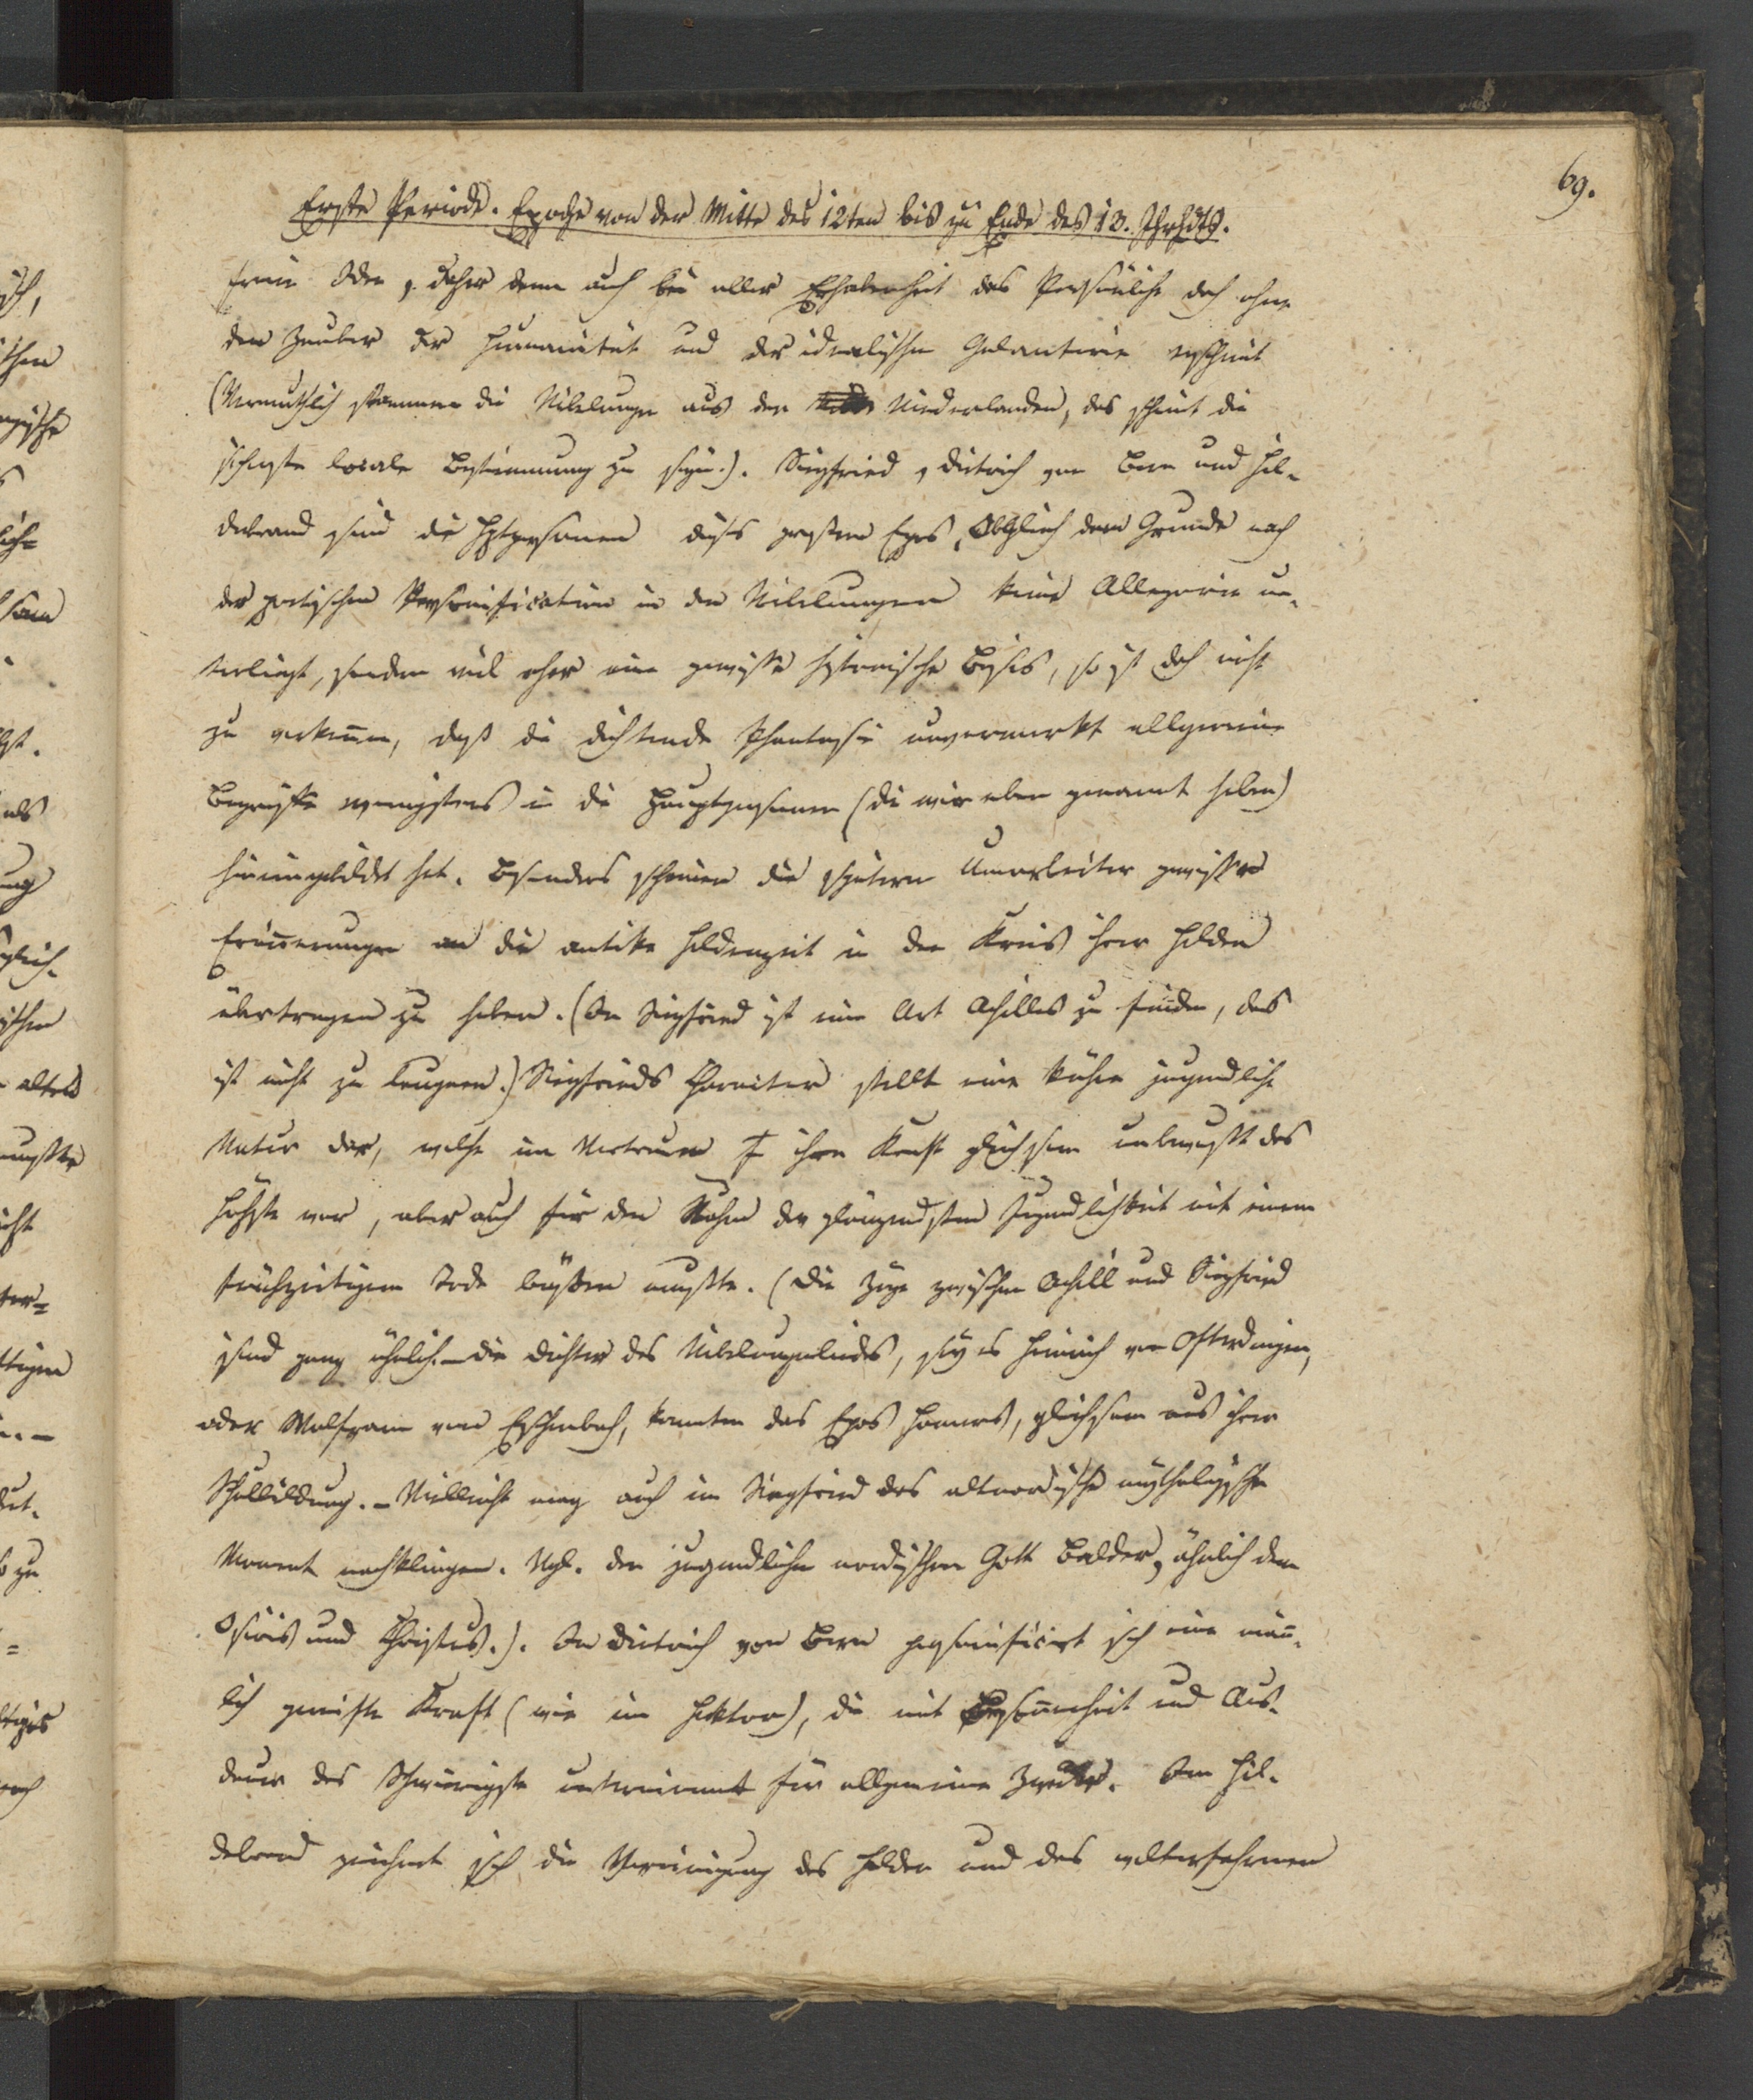 69.
Erste Periode. Epoche von der Mitte des 12ten bis zu Ende des 13. Jhrhdts.
freie Idee, daher denn auch bei aller Erhabenheit das Persönliche doch ohne
den Zauber der Humanität und der idealischen Galanterie erscheint
(Vermuthlich stammen die Nibelungen aus den Niederlanden, das scheint die
sicherste locale Bestimmung zu seyn.). Siegfried, Dietrich von Bern und Hil-
debrand sind die Hptpersonen dieses großen Epos, Obgleich dem Grunde nach
der poetischen Personification in den Nibelungen keine Allegorie un-
terliegt, sondern viel eher eine gewisse historische Basis, so ist doch nicht
zu verkennen, daß die dichtende Phantasie unvermerkt allgemeine
Begriffe wenigstens in die Hauptpersonen (die wir eben genannt haben)
hineingebildet hat. Besonders scheinen die spätern Umarbeiter gewisse
Erinnerungen an die antike Heldenzeit in den Kreis ihrer Helden
übertragen zu haben. (In Siegfried ist eine Art Achilles zu finden, das
ist nicht zu leugnen.) Siegfrieds Charakter stellt eine kühne jugendliche
Natur dar, welche im Vertrauen ihrer Kraft gleichsam unbewußt das
Höchste war, aber auch für den Ruhm der glänzendsten Jugendlichkeit mit einem
frühzeitigen Tode büßen mußte. (Die Züge zwischen Achill und Siegfried
sind ganz ähnlich. – Die Dichter des Nibelungenlieds, sey es Heinrich von Ofterdingen,
oder Wolfram von Eschenbach, kannten das Epos Homers, gleichsam aus ihrer
Schulbildung. – Vielleicht mag auch im Siegfried das altnordische mythologische
Moment nachklingen. Vgl. den jugendlichen nordischen Gott Balder, ähnlich dem
Osiris und Christus.). In Dietrich von Bern personificirt sich eine männ-
lich gereifte Kraft (wie im Hektor), die mit Besonnenheit und Aus-
dauer das Schwierigste unternimmt für allgemeine Zwecke. Im Hil-
debrand zeichnet sich die Vereinigung des Helden und des welterfahrenen